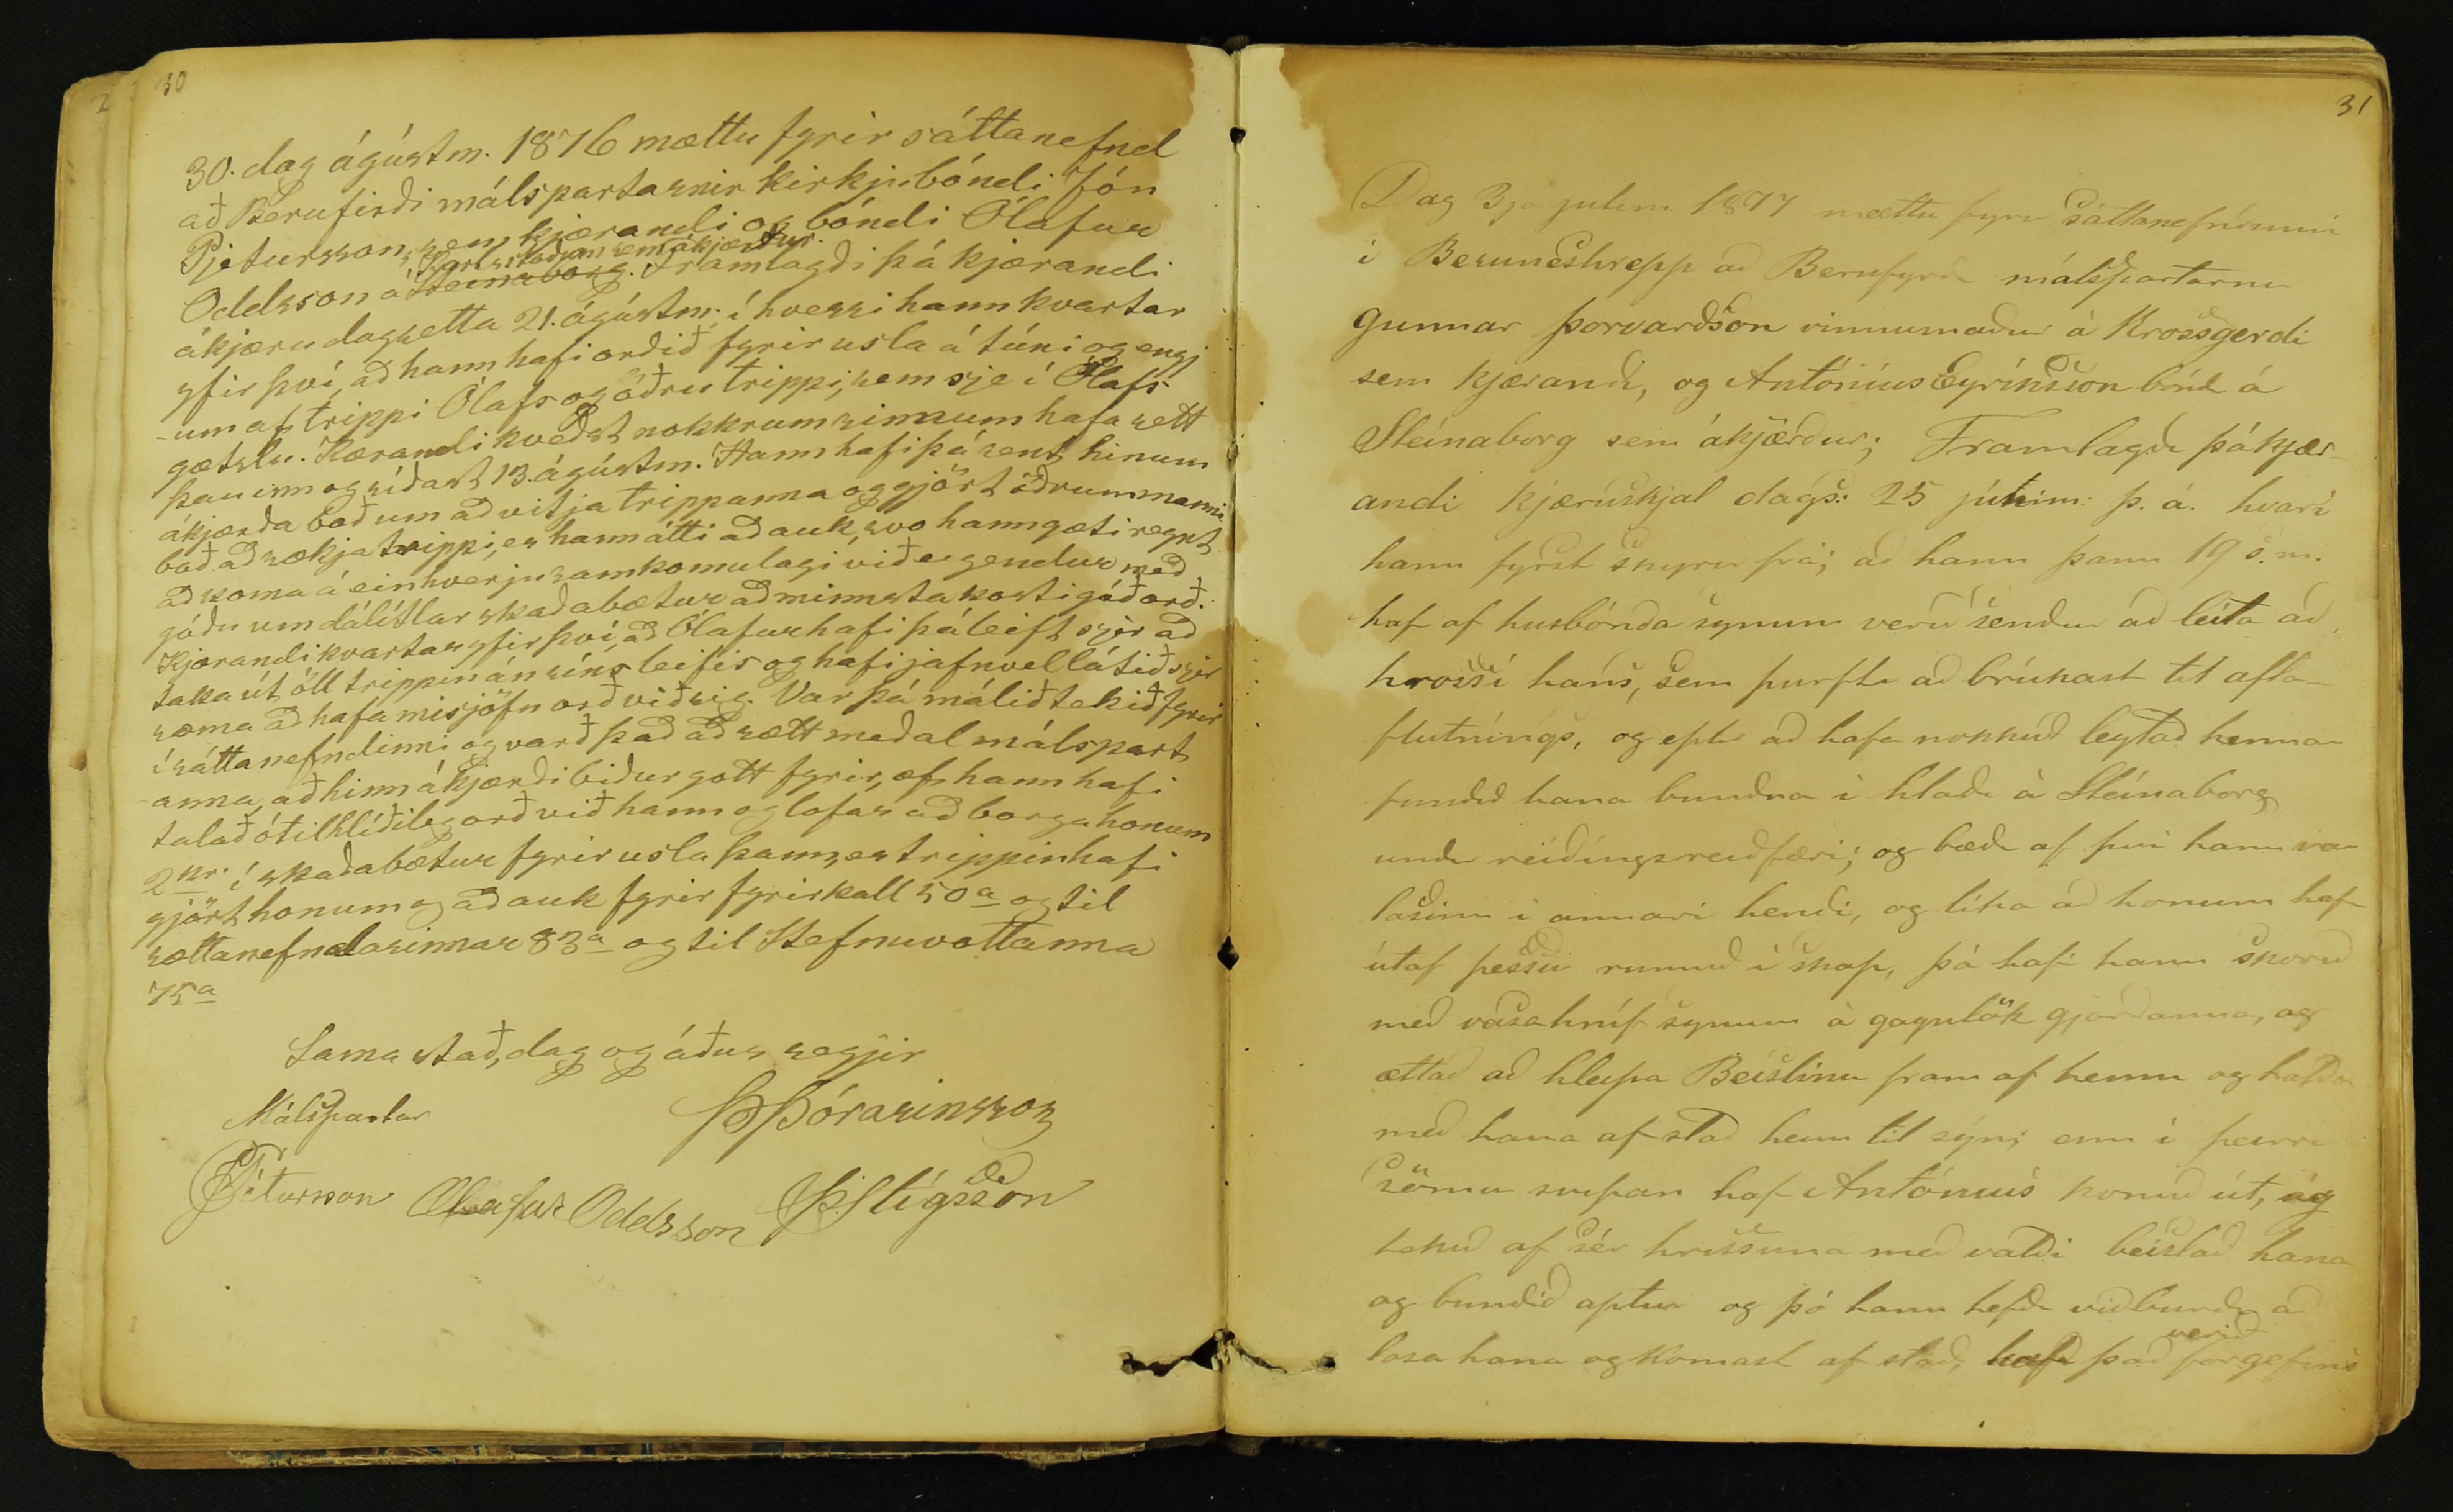 30
30. dag ágústm. 1876 mættu fyrir sáttanefnd
að Berufirði málspartarnir kirkjubóndi Jón
Pjetursson, sem kjærandi og bóndi Ólafur
Karlsstöðum sem ákjærður.
Oddsson á Steinaborg. Framlagði þá kjærandi
ákjæru dagsetta 21. ágústm; í hverri hann kvartar
yfir því, að hann hafi orðið fyrir usla á túni og engj
-um af trippi Ólafs og öðru trippi, sem sje í Ólafs
gætslu. Kærandi kveðst nokkrum sinnum hafa sett
þau inn og síðast 13. ágústm. Hann hafi þá sent hinum
ákjærða boð um að vitja trippanna og gjört öðrum manni
boð að sækja trippi, er hann átti að auk, svo hann gæti reynt
að koma á einhverju samkomulagi við eigendur með
góðu um dálitlar skaðabætur að minnsta kosti góð orð.
Kjærandi kvartar yfir því, að Ólafur hafi þá leift sjer að
taka út öll trippin án síns leifis og hafi jafnvel látið sjer
sæma að hafa misjöfn orð við sig. Var þá málið tekið fyrir
í sáttanefndinni og varð það að sætt meðal málspart
-anna, að hinn ákjærði biður gott fyrir, ef hann hafi
talað ótilhlíðileg orð við hann og lofar að borga honum
2 kr. í skaðabætur fyrir usla þann, er trippin hafi
gjört honum og að auk fyrir fyrirkall 50 a og til
sættanefndarinnar 83 a og til Stefnuvottanna
75 a
Sama stað, dag og áður segjir
Málspartar ÞÞórarinsson
JPétursson Ólafur Oddsson Þ. Stígsson
31
Dag 3ja julim 1877 mættu fyrir Sáttanefndinni
í Beruneshrepp að Berufyrði málspartarnir
Gunnar Þorvarðsson vinnumaður á Krossgerdi
sem kjærandi, og Antóníus Eyríksson bónd á
Steinaborg sem ákjærður; Framlagði þá kjær-
andi kjæruskjal dags: 25 júním: þ. á. hvarí
hann fyrst skyrir frá; að hann þann 19 s. m.
hafi af husbónda synum verið sendur að leita að
hrossi hans, sem þurfti að brúkast til afla-
flutnings, og eptir að hafa nokkuð leytað hennar
fundið hana bundna í hlaði á Steinaborg
undir reiðingsreiðfæri; og bæði af því hann var
lasinn í annari hendi, og lika að honum hafi
útaf þessu runnið í skap, þá hafi hann skorið
með vasahníf synum á gagntök gjarðanna, og
ættað að hleypa Beislinu fram af henni og halda
með hana af stað heim til sýn; enn í þeirri
sömu svipan hafi Antóníus komið út, og
tekið af sér hrissuna með valdi beislað hana
og bundið aptur og þó hann hefði viðburði að
verið
losa hana og komast af stað, hafi það forgefins